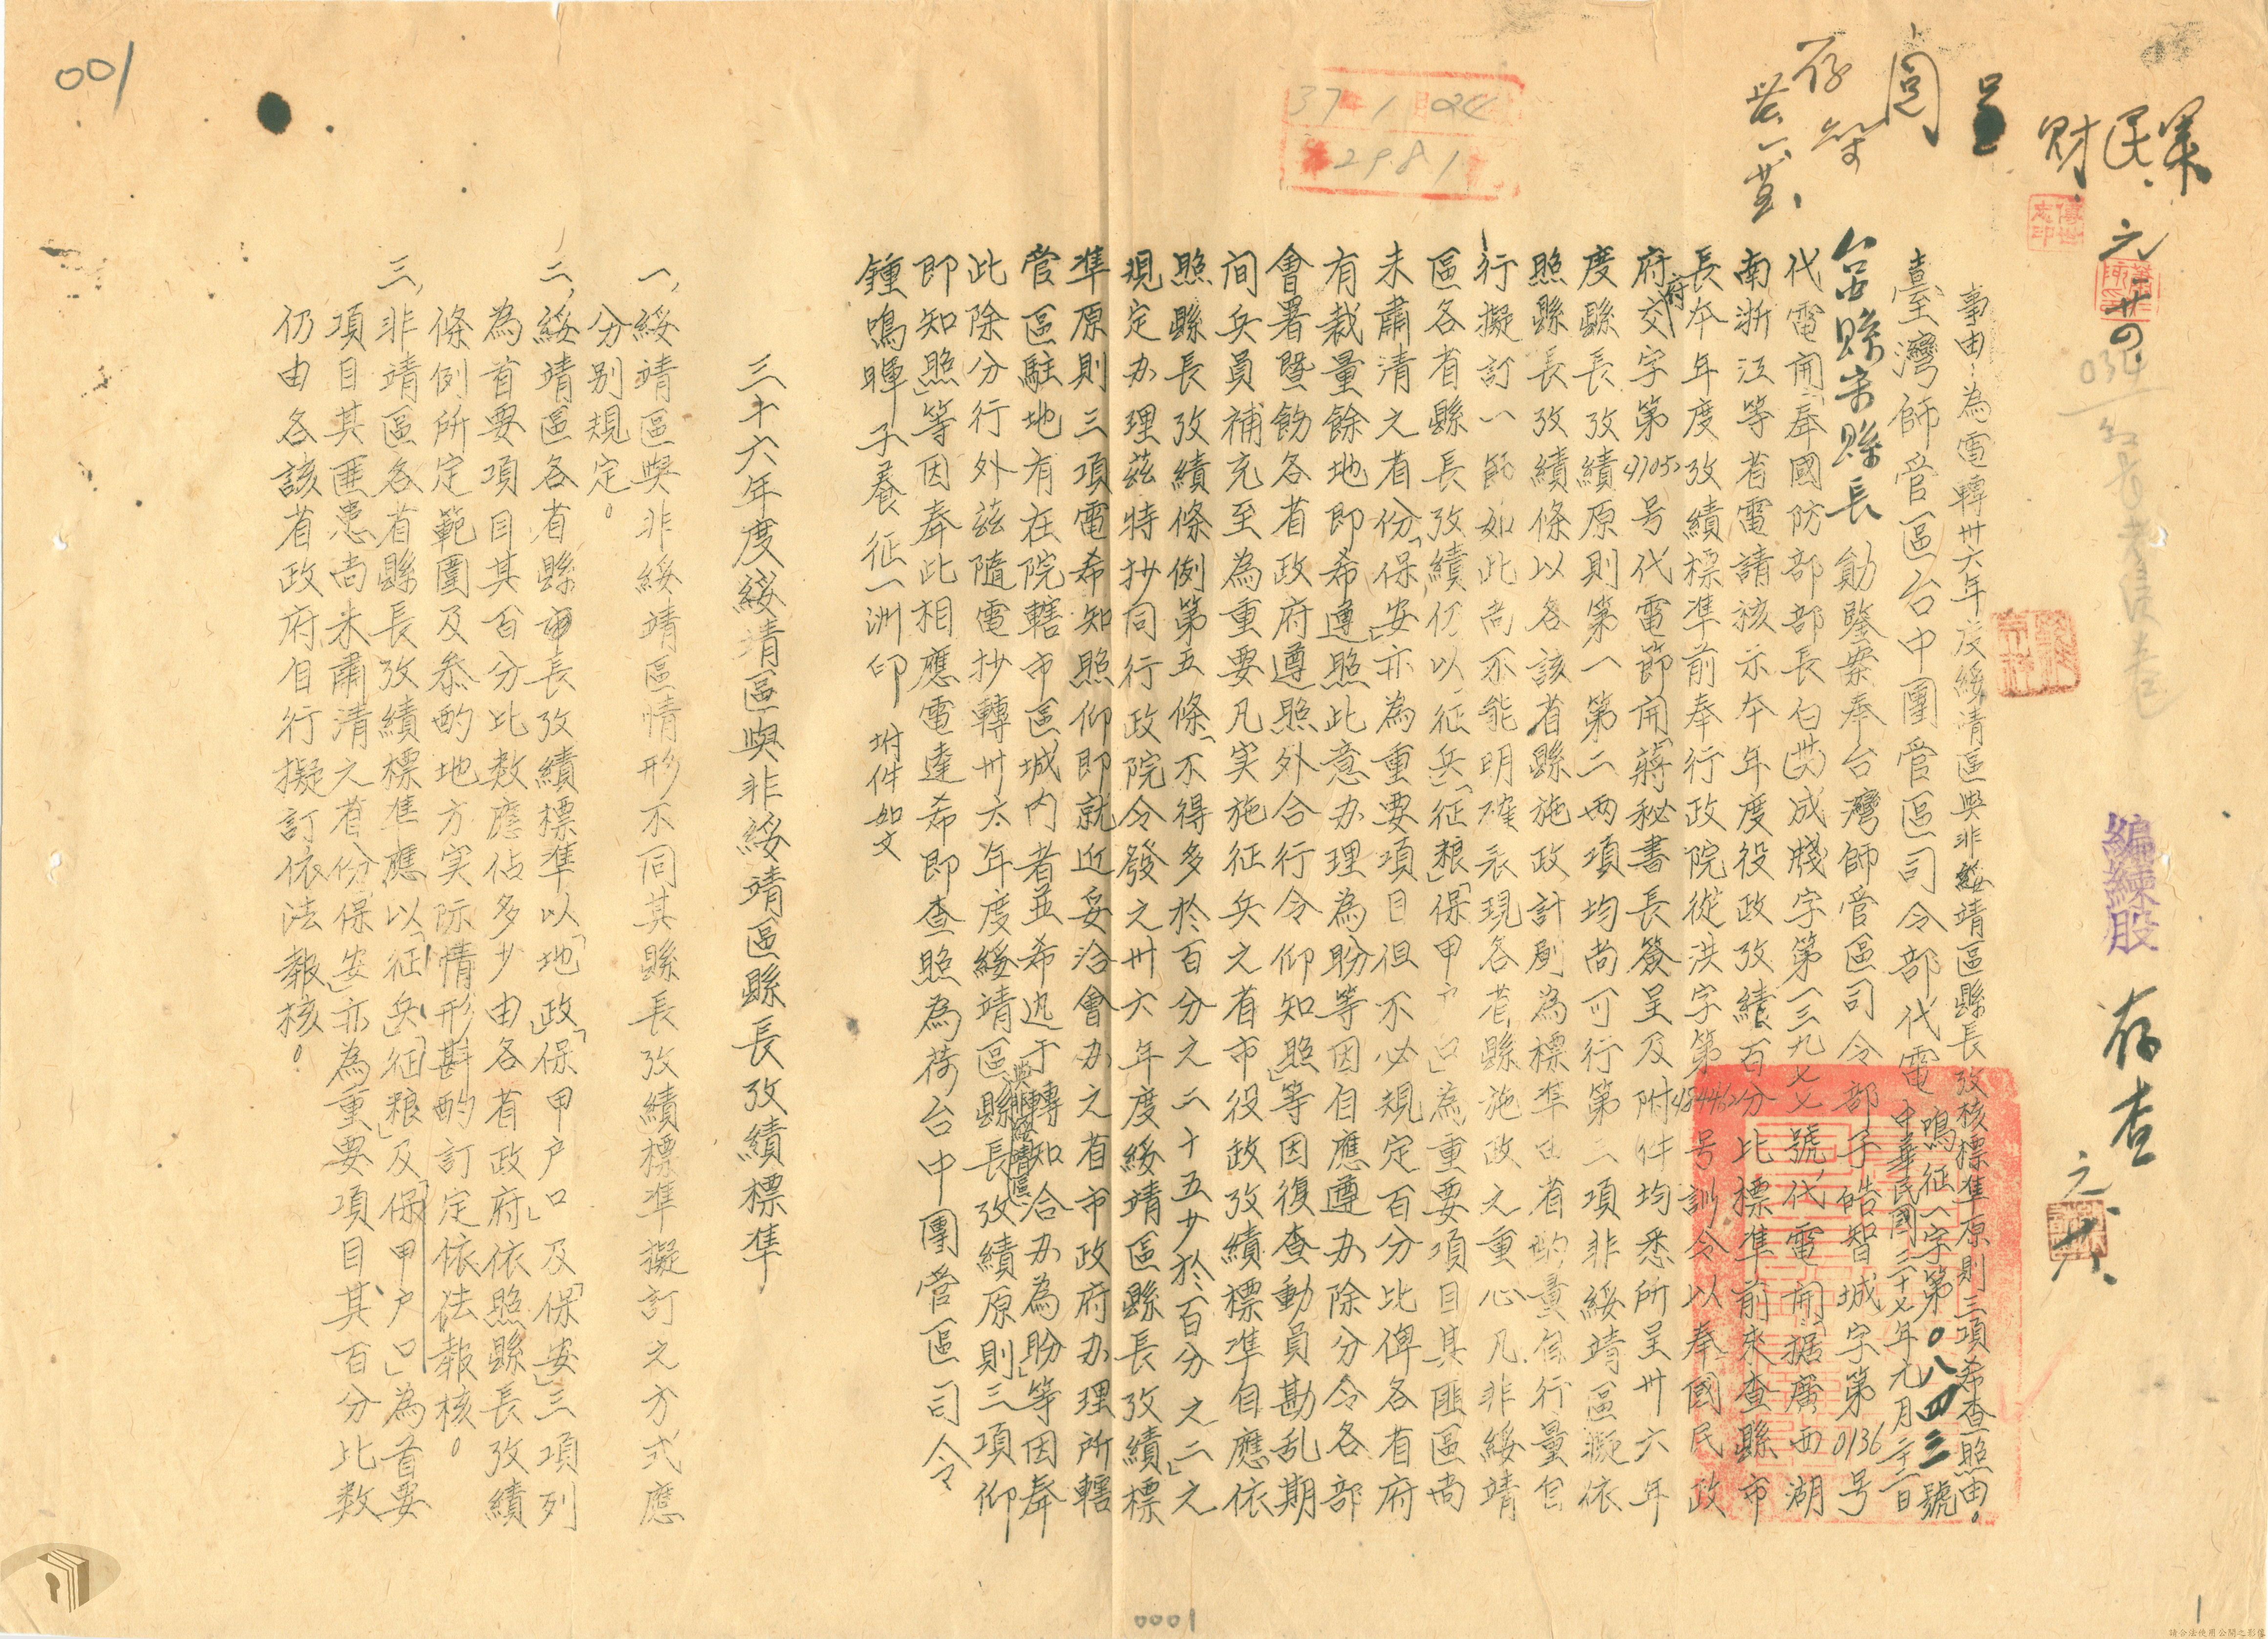 事由:為電轉卅六年度綏靖區與非綏靖區縣長攷核標準原則三項希查照由。
臺灣師管區台中團管區司令部代電
鳴征一字第〇八四三號
中華民國三十七年元月二十二日
台中縣宋縣長
勛鑒案奉台灣師管區司令部子皓智城字第0136号
代電開「奉國防部部長白成牋字第一三九七七號代電開「据廣西湖
南浙江等省電請核示本年度役政攷績百分比標準前來查縣市
長本年度攷績標準前奉行政院從洪字第48446號訓令以奉國民政
府府交字第4705号代電節開「蔣秘書長簽呈及附件均悉所呈卅六年
度縣長攷績原則第一第二兩項均尚可行第三項非綏靖區擬依
照縣長攷績條以各該省縣施政計劃為標準由省酌量自行量自
行擬訂一節如此尚不能明確表現各省縣施政之重心凡非綏靖
區各省縣長攷績仍以「征兵」「征粮」「保甲户口」為重要項目其匪區尚
未肅清之省份「保安」亦為重要項目但不必規定百分比俾各省府
有裁量餘地即希遵照此意办理為盼等因自應遵办除分令各部
會署暨飭各省政府遵照外合行令仰知照」等因復查動員勘乱期
间兵員補充至為重要凡实施征兵之省市役政攷績標準自應依
照縣長攷績條例第五條「不得多於百分之二十五少於百分之二」之
規定办理茲特抄同行政院令發之卅六年度綏靖區縣長攷績標
準原則三項電希知照仰即就近妥洽會办之省市政府办理所轄
管區駐地有在院轄市區城内者並希迅予轉知洽办為盼等因奉
此除分行外茲隨電抄轉卅六年度綏靖區與非綏靖區縣長攷績原則三項仰
即知照」等因奉此相應電達希即查照為荷台中團管區司令
鍾鳴暉子養征一洲印 坿件如文
三十六年度綏靖區與非綏靖區縣長攷績標準
一、綏靖區與非綏靖區情形不同其縣長攷績標準擬訂之方式應
分别規定。
二、綏靖區各省縣市長攷績標準以「地政」「保甲户口」及「保安」三項列
為首要項目其百分比数應佔多少由各省政府依照縣長攷績
條例所定範圍及参酌地方实际情形斟酌訂定依法報核。
三、非靖區各省縣長攷績標準應以「征兵」「征粮」及「保甲户口」為首要
項目其匪患尚未肅清之省份「保安」亦為重要項目其百分比数
仍由各該省政府自行擬訂依法報核。
民財
元廿四
034
編練股
存查
呈
閱
存
37 1 24
2981
001
0001
1
請合法使用公開之影像